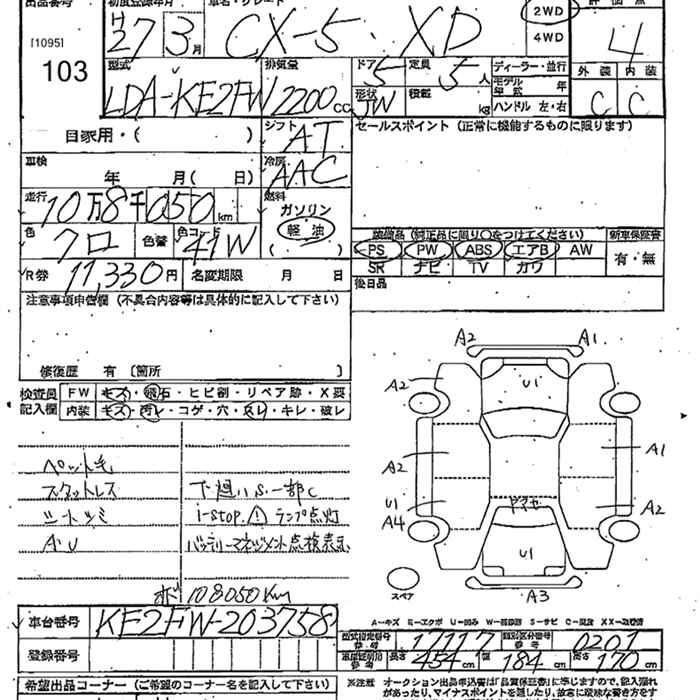 出品番号 初度登録年月 車名・グレード 評価点
[1095] H27 3月 CX-5 XD 2WD 4WD 4
103
型式 排気量 ドア 定員 ディーラー・並行 外装 内装
LDA-KE2FW 2200cc 5 5人 モデル年式 年 C C
形状 JW 積載 kg ハンドル 左・右
自家用・( ) シフト AT セールスポイント (正常に機能するものに限ります)
車検 年 月( 日) 冷房 AAC
走行 10万8千050km 燃料 ガソリン 軽油 ( )
色 クロ 色替 色コード 41W 装備品 (純正品に限り○をつけてください) 新車保証書
PS PW ABS エアB AW 有・無
R券 11,330円 名変期限 月 日 SR ナビ TV カワ
注意事項申告欄 (不具合内容等は具体的に記入して下さい) 後日品
修復歴 有 〔箇所 〕
検査員記入欄 FW キズ・飛石・ヒビ割・リペア跡・X要
内装 キズ・汚レ・コゲ・穴・スレ・キレ・破レ
A2 A1
A2 U1
A2 A1
U1 A4 ヤマセ A2
U1
スペア A3
ペット毛
スタットレス 下廻りS.一部C
シートシミ i-stop. ⚠ ランプ点灯
A・U バッテリーマネジメント点検表示
メ 108050Km
A-キズ E-エクボ U-凹み W-補修跡 S-サビ C-腐食 XX-交換済
車台番号 KE2FW-203758
型式指定番号 参考 17117 類別区分番号 参考 0201
登録番号
車両諸元 参考 長さ 454cm 幅 184cm 高さ 170cm
希望出品コーナー (ご希望のコーナー名を記入して下さい)
※注意 オークション出品申込書は「品質保証書」に準じますので、記入漏れ
があったり、マイナスポイントを隠したり、故意に悪意な書き方をす